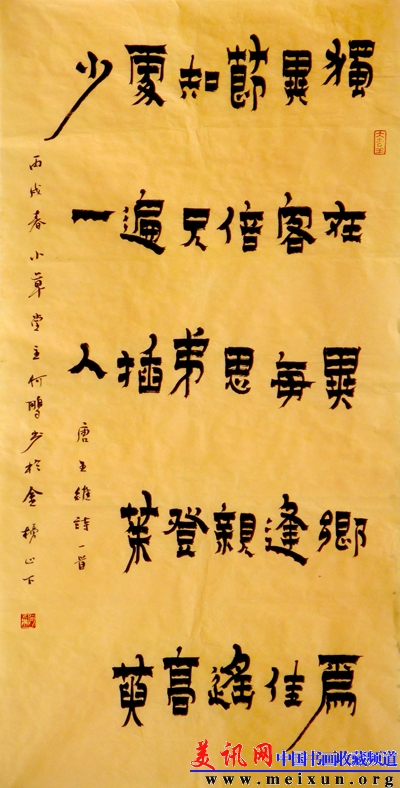 獨在異鄉爲
異客每逢佳
節倍思親遙
知兄弟登高
處遍插茱萸
少一人
唐王維詩一首
丙戌春小草堂主何鵬书於金榜山下
美讯网 中国书画收藏频道
www.meixun.org